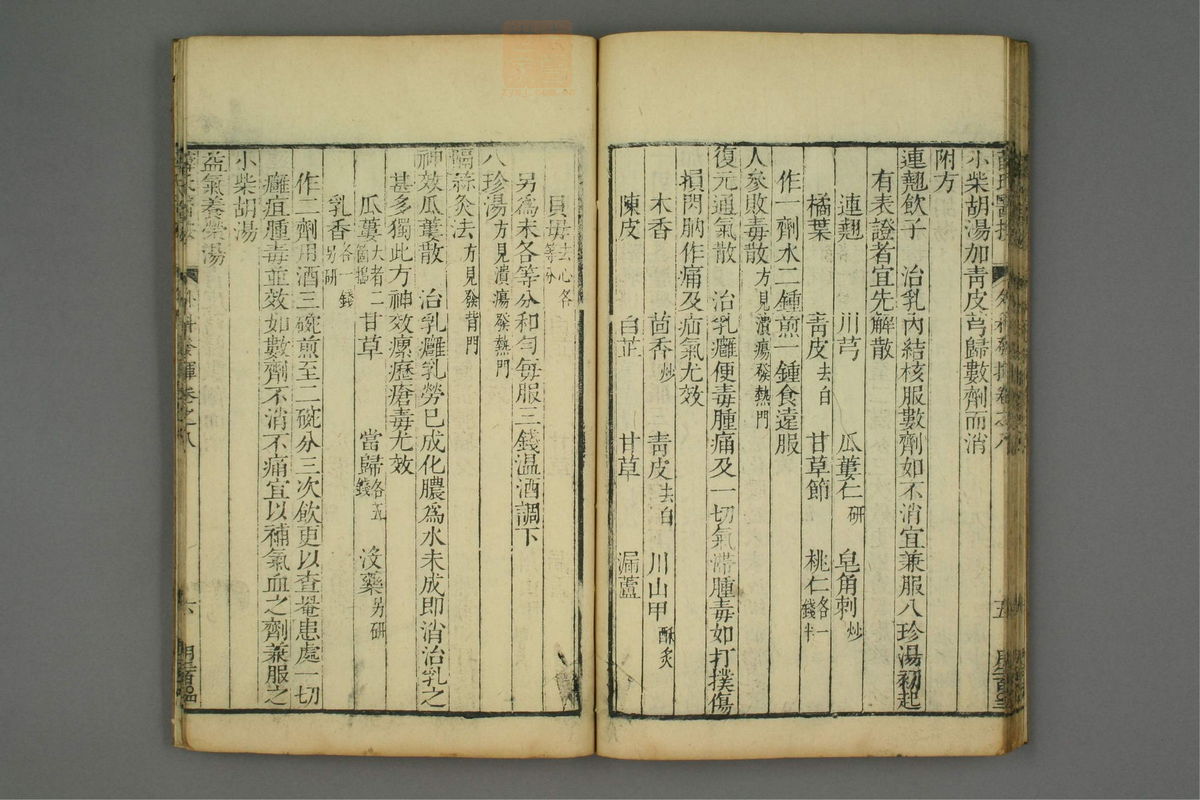 小柴胡湯加靑皮芎歸數劑而消
附方
連翹飲子　治乳內結核服數劑如不消宜兼服八珍湯初起
有表證者宜先解散
連翹　川芎　瓜蔞仁研　皂角刺炒
橘葉　靑皮去白　甘草節　桃仁各一錢半
作一劑水二鍾煎一鍾食遠服
人參敗毒散方見潰瘍發熱門
復元通氣散　治乳癰便毒腫痛及一切氣滯腫毒如打撲傷
損閃肭作痛及疝氣尤效
木香　茴香炒　靑皮去白　川山甲酥炙
陳皮　白芷　甘草　漏蘆
貝母去心各等分
另爲末各等分和勻每服三錢温酒調下
八珍湯方見潰瘍發熱門
隔蒜灸法方見發背門
神效瓜蔞散　治乳癰乳勞已成化膿爲水未成即消治乳之
甚多獨此方神效瘰癧瘡毒尤效
瓜蔞大者二箇搗　甘草　當歸各五錢　沒藥另研
乳香各一錢另研
作二劑用酒三碗煎至二碗分三次飲更以查罨患處一切
癰疽腫毒並效如數劑不消不痛宜以補氣血之劑兼服之
小柴胡湯
益氣養榮湯
外科發揮卷之八　六